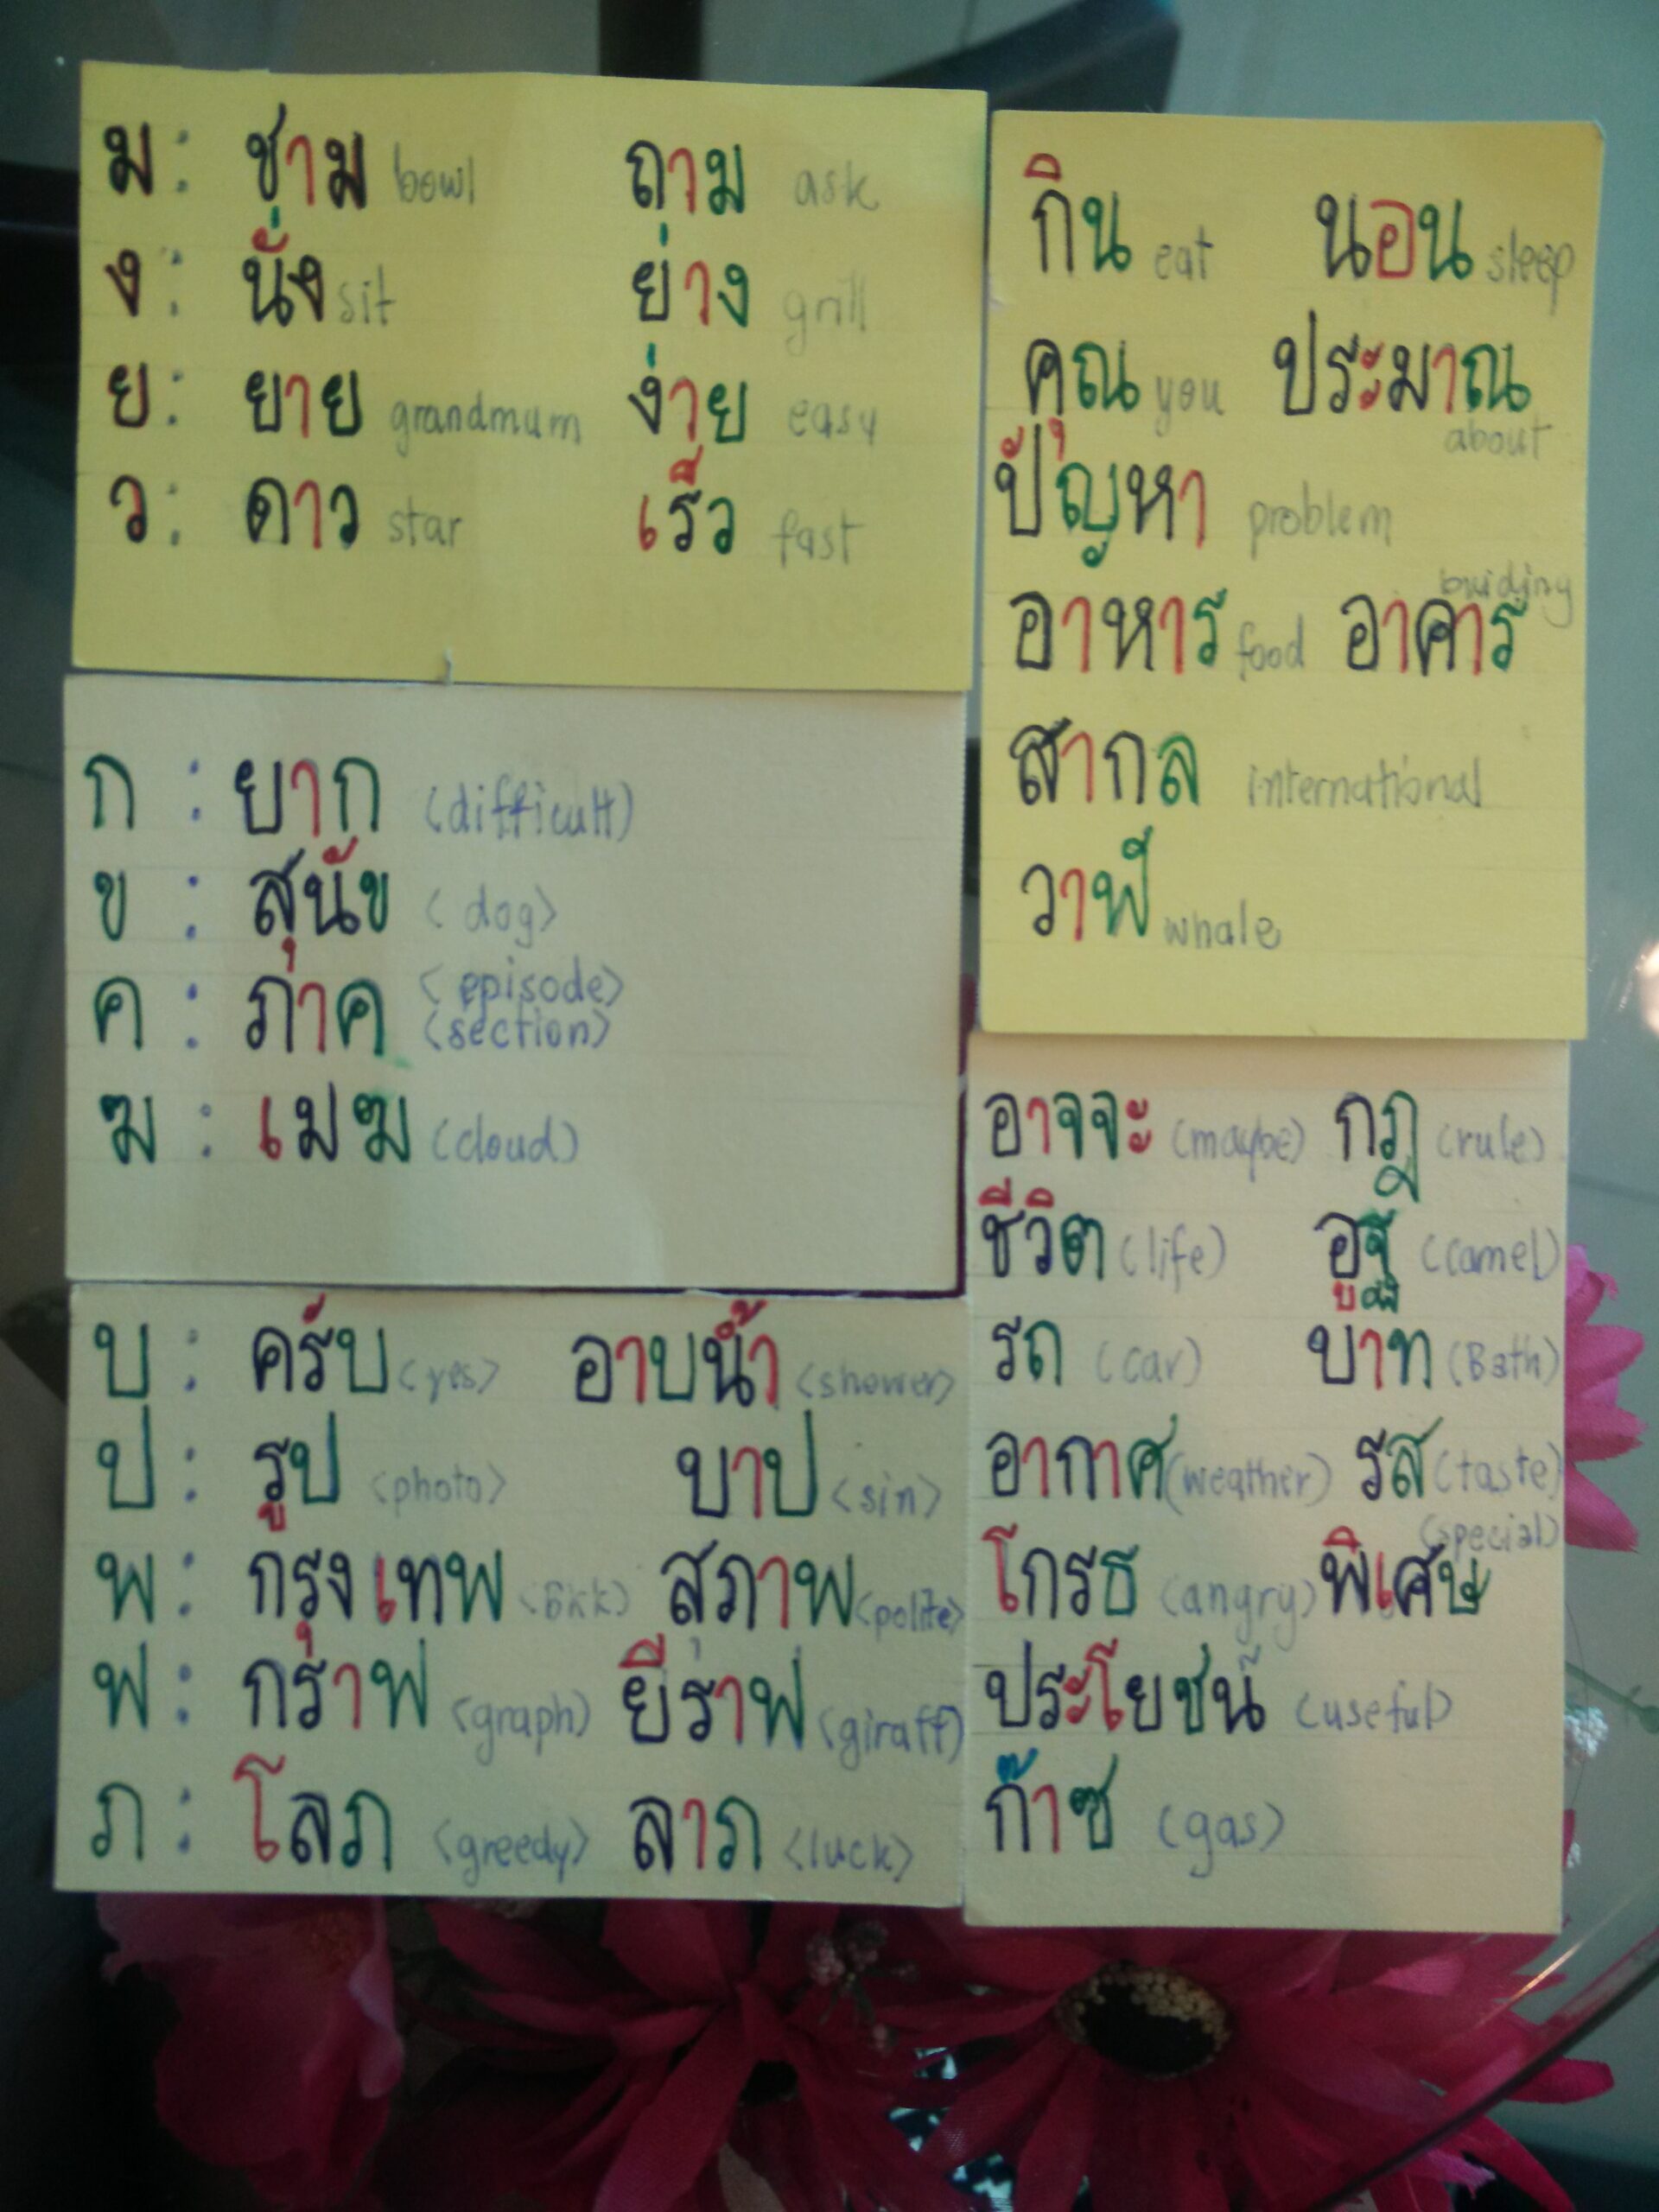 ม : ชาม bowl ถาม ask
ง : นั่ง sit ย่าง grill
ย : ยาย grandmum ง่าย easy
ว : ดาว star เร็ว fast
กิน eat นอน sleep
คุณ you ประมาณ
about
ปัญหา problem
buiding
อาหาร food อาคาร
สากล international
วาฬ whale
ก : ยาก (difficult)
ข : สุนัข <dog>
ค : ภาค <episode>
<section>
ฆ : เมฆ (cloud)
อาจจะ (maybe) กฎ (rule)
ชีวิต (life) อูฐ (camel)
รถ (car) บาท (Bath)
อากาศ (weather) รส (taste)
(special)
โกรธ (angry) พิเศษ
ประโยชน์ (useful)
ก๊าซ (gas)
บ : ครับ <yes> อาบน้ำ <shower>
ป : รูป <photo> บาป <sin>
พ : กรุงเทพ <Bkk> สุภาพ <polite>
ฟ : กราฟ <graph) ยีราฟ (giraff)
ภ : โลภ <greedy> ลาภ <luck>